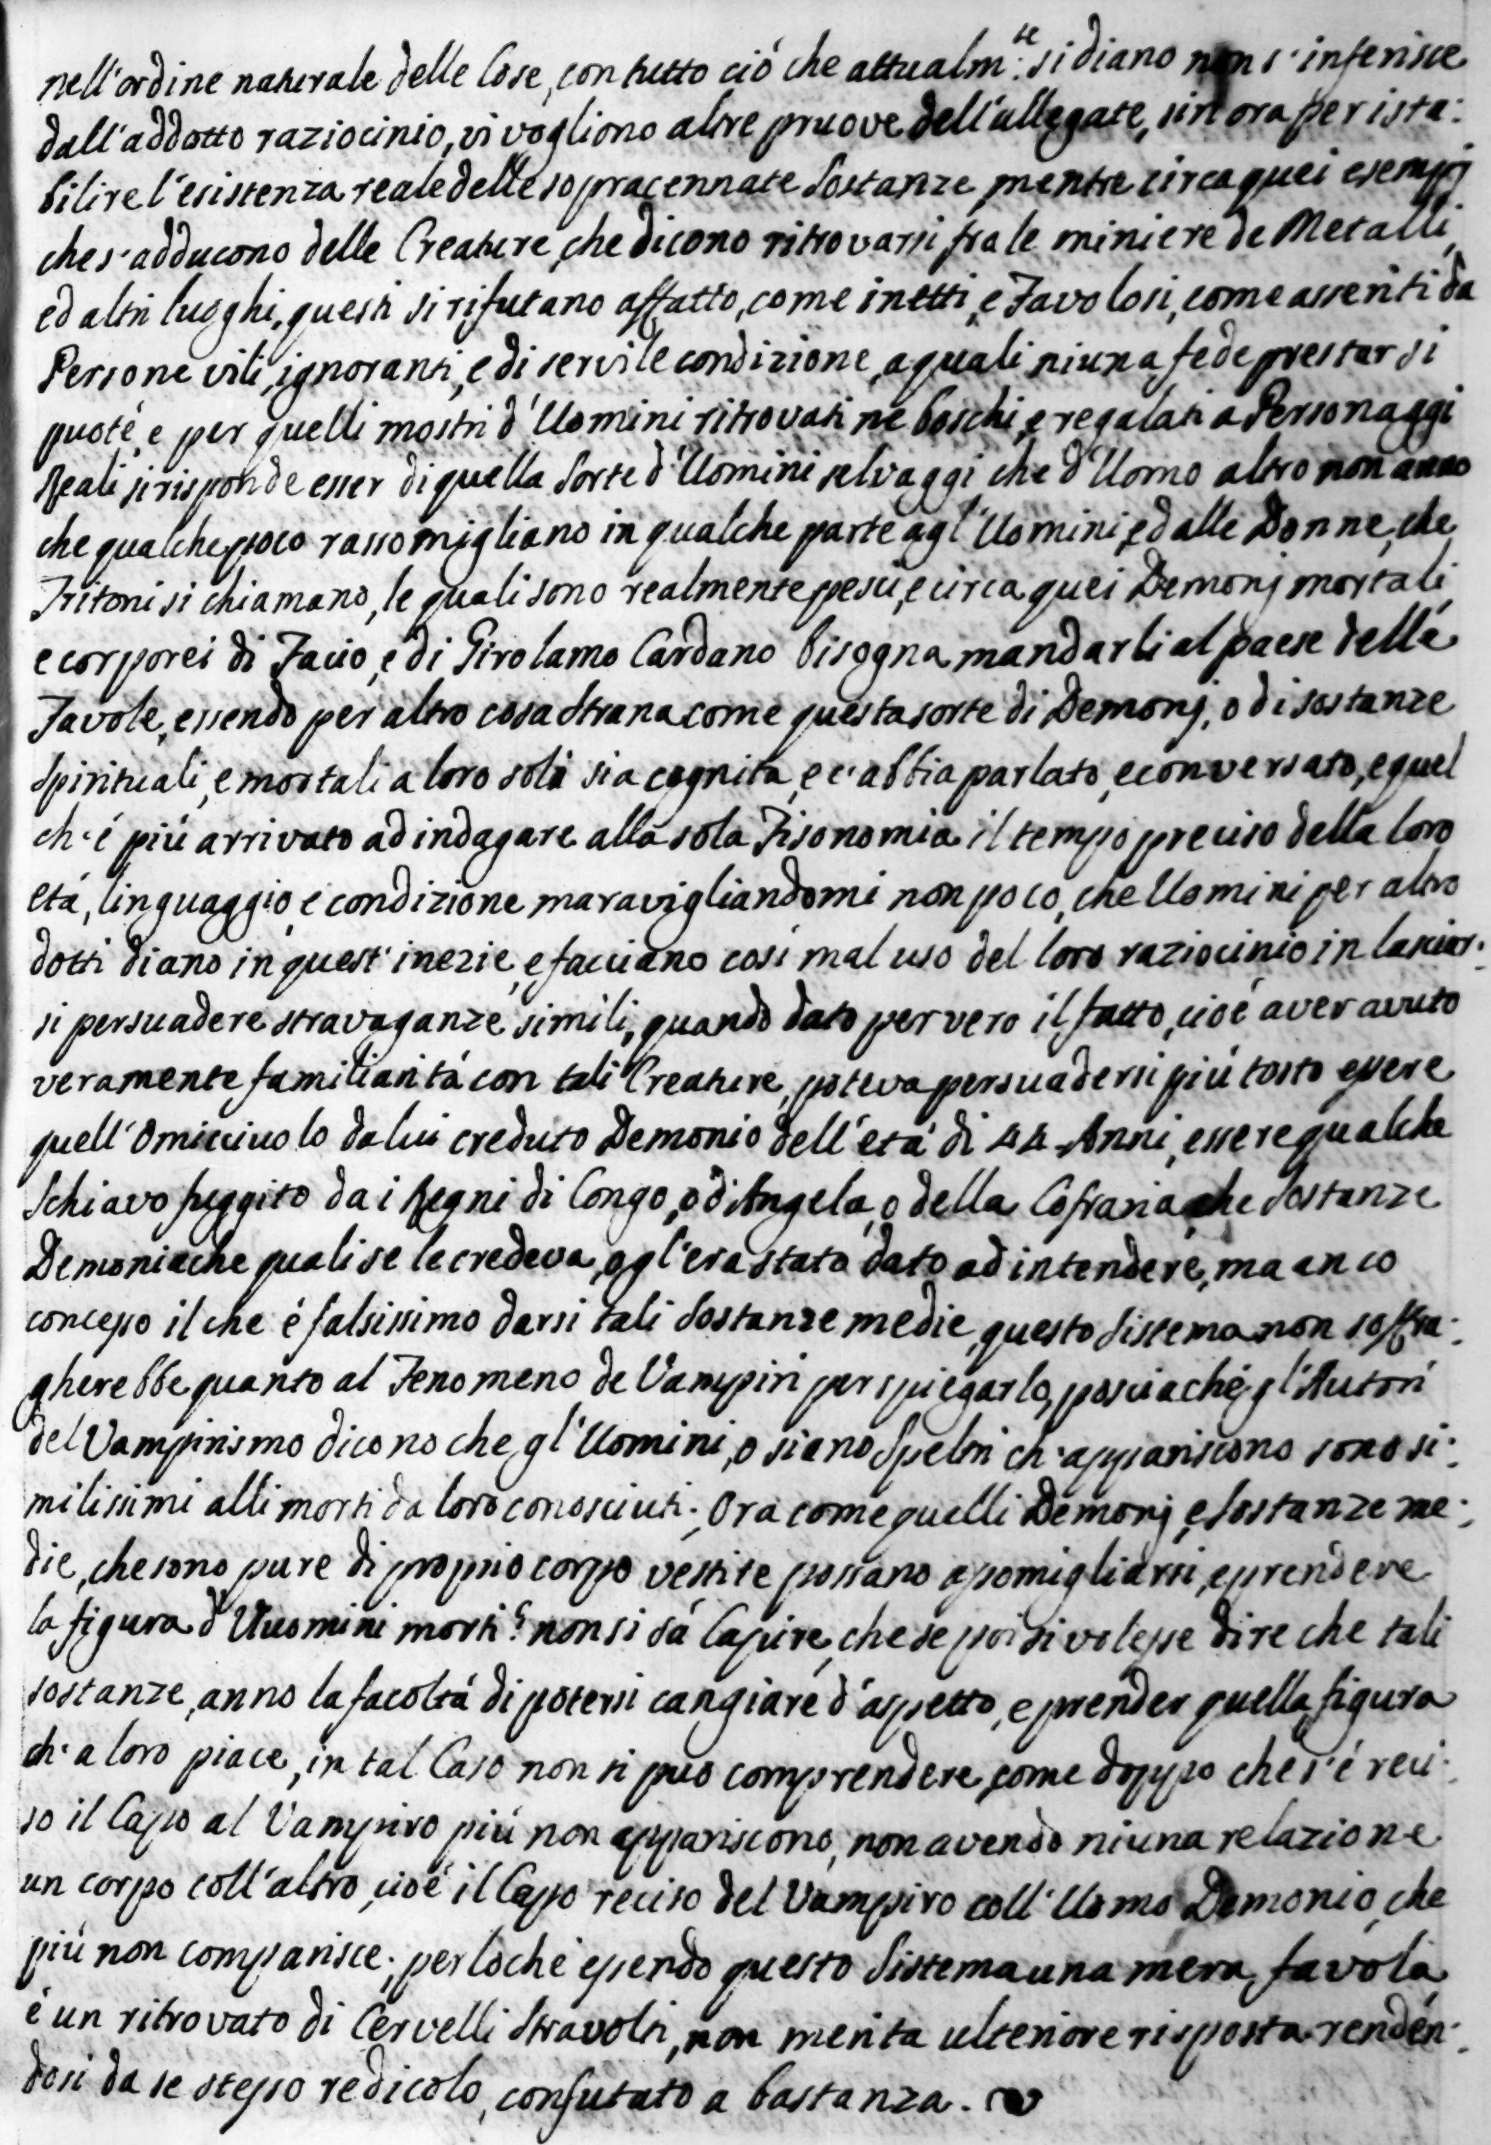 nell'ordine naturale delle Cose, con tutto ciò che attualm:te si diano non s'inferisce
dall'addotto raziocinio, vi vogliono altre pruove dell'allegate, sin ora per ista:
bilire l'esistenza reale delle sopracennate Sostanze, mentre circa quei esempj
che s'adducono delle Creature, che dicono ritrovarsi fra le miniere de Metalli,
ed altri luoghi, questi si rifutano affatto, come inetti, e Favolosi, come asseriti da
Persone vili, ignoranti, e di servile condizione, a quali niuna fede prestar si
puoté, e per quelli mostri d'Uomini ritrovati ne boschi, e regalati a Personaggi
Reali si risponde esser di quella Sorte d'Uomini selvaggi che d'Uomo altro non anno
che qualche poco rassomigliano in qualche parte agl'Uomini, ed alle Donne, che
Tritoni si chiamano, le quali sono realmente pesci, e circa quei Demonj mortali,
e corporei di Facio, e di Girolamo Cardano bisogna mandarli al paese delle
Favole, essendo per altro cosa strana come questa sorte di Demonj, o di sostanze
Spirituali, e mortali a loro soli sia cognita, e c'abbia parlato, e conversato, e quel
ch'é piú arrivato ad indagare alla sola Fisonomia il tempo preciso della loro
etá, linguaggio, e condizione maravigliandomi non poco, che Uomini per altro
dotti diano in quest'inezie, e facciano cosí mal uso del loro raziocinio in lasciar:
si persuadere stravaganze simili, quando dato per vero il fatto, cioé aver avuto
veramente familiaritá con tali Creature, poteva persuadersi piú tosto essere
quell'Omicciuolo da lui creduto Demonio dell'etá di 44 Anni, essere qualche
Schiavo fuggito da i Regni di Congo, o d'Angela, o della Cafraria che Sostanze
Demoniache quali se le credeva, o gl'era stato dato ad intendere, ma anco
concesso il che é falsissimo darsi tali Sostanze medie, questo Sistema non soffra:
gherebbe quanto al Fenomeno de Vampiri per spiegarlo, posciaché gl'Autori
del Vampirismo dicono che gl'Uomini, o siano Spetri ch'appariscono sono si:
milissimi alli morti da loro conosciuti; Ora come quelli Demonj, e Sostanze me:
die, che sono pure di proprio corpo vestite possano assomigliarsi, e prendere
la figura d'Uuomini morti? non si sá Capire, che se poi si volesse dire che tali
sostanze, anno la facoltá di potersi cangiare d'aspetto, e prender quella figura
ch'a loro piace, in tal Caso non si puo comprendere, come doppo che s'é reci:
so il Capo al Vampiro piú non appariscono, non avendo niuna relazione
un corpo coll'altro, cioé il Capo reciso del Vampiro coll'Uomo Demonio, che
piú non comparisce; perloché essendo questo Sistema una mera favola,
é un ritrovato di Cervelli Stravolti, non merita ulteriore risposta renden:
dosi da se stesso redicolo, confutato a bastanza.